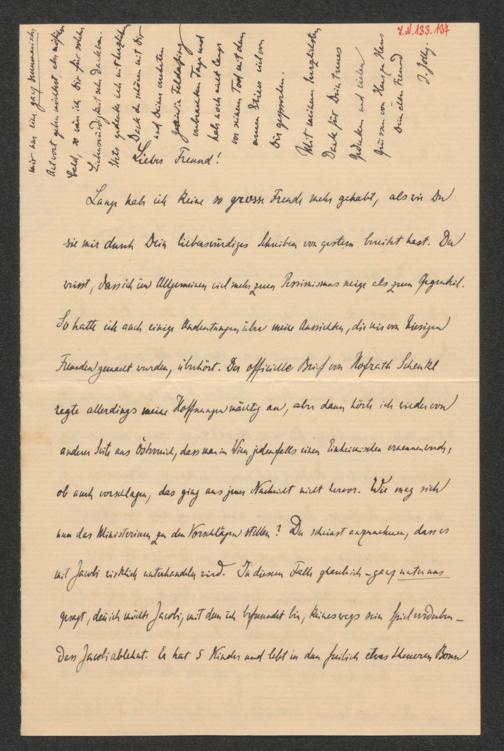 I.N. 193.137
Lieber Freund!
Lange hab ich keine so grosse Freude mehr gehabt, als wie Du
sie mir durch Dein liebenswürdiges Schreiben von gestern bereitet hast. Du
weisst, dass ich im Allgemeinen viel mehr zum Pessimismus neige als zum Gegenteil.
So hatte ich auch einige Andeutungen über meine Aussichten, die mir von hiesigen
Freunden gemacht wurden, überhört. Der officielle Brief von Hofrath Schenkl
regte allerdings meine Hoffnungen mächtig an, aber dann hörte ich wieder von
anderer Seite aus Österreich, dass man in Wien jedenfalls einen Einheimischen ernennen
ob auch vorschlagen, das ging aus jener Nachricht nicht hervor. Wie mag sich
nun das Ministerium zu den Vorschlägen stellen? Du scheinst anzunehmen, dass es
mit Jacobi wirklich unterhandeln wird. In diesem Falle glaube ich – ganz unter uns
gesagt, denn ich möchte Jacobi, mit dem ich befreundet bin, keineswegs sein Spiel verderben –
dass Jacobi ablehnt. Er hat 5 Kinder und lebt in dem freilich etwas theueren Bonn
mir nur ein ganz
Antwort geben möchtest, als
bald, so wäre ich Dir für solche
Liebenswürdigkeit sehr dankbar.
Stets gedenke ich mit herzlichem
Dank der schönen mit Dir
und Deiner verehrten
Gemahlin in Feldafing
verbrachten Tage und
hab noch nicht lange
vor seinem Tod mit dem
armen viel von
Dir gesprochen.
Mit meinem herzlichsten
Dank für Dein treues
Gedenken und vielen
Grüssen von Haus zu Haus
Dein alter Freund
J. Jolly.